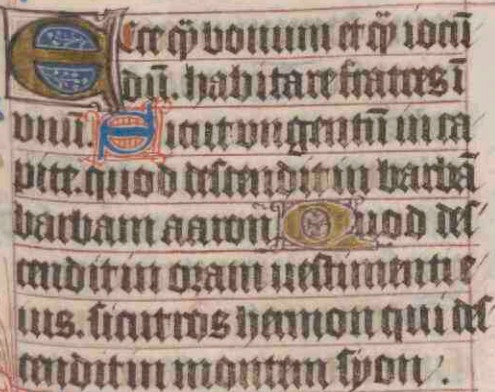 Ecce qͫ bonum et qͫ iocū
dū. habitare fratres ī
vnū. Sicut vngentū in ca
pite. quod descendit in barbā
barbam aaron Quod des
cendit in oram uestimenti e
ius. sicut ros hermon qui des
cendit in montem syon.